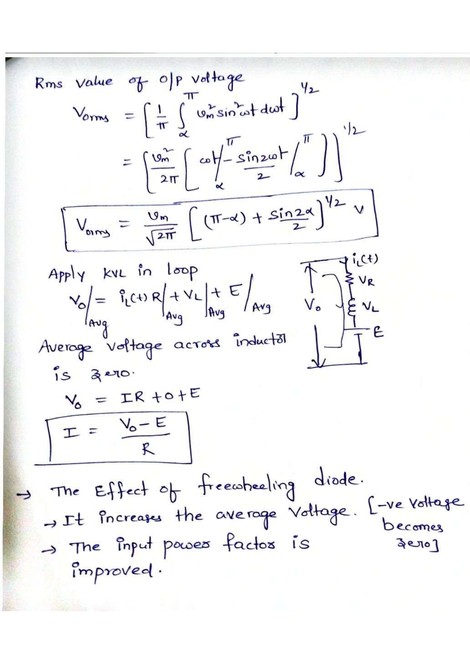 Rms value of o/p voltage
Vorms = [1/π ∫α^π Vm² sin²ωt dωt]^1/2
= [Vm²/2π [ωt/α^π - sin2ωt/2 /α^π]]^1/2
Vorms = Vm/√2π [(π-α) + sin2α/2]^1/2 V
Apply KVL in loop
V0/Avg = iL(t) R/Avg + VL/Avg + E/Avg
Average voltage across inductor
is zero.
V0 = IR + 0 + E
I = V0 - E / R
iL(t)
VR
V0
VL
E
→ The Effect of freewheeling diode.
→ It increases the average voltage. [-ve voltage
becomes
zero]
→ The input power factor is
improved.